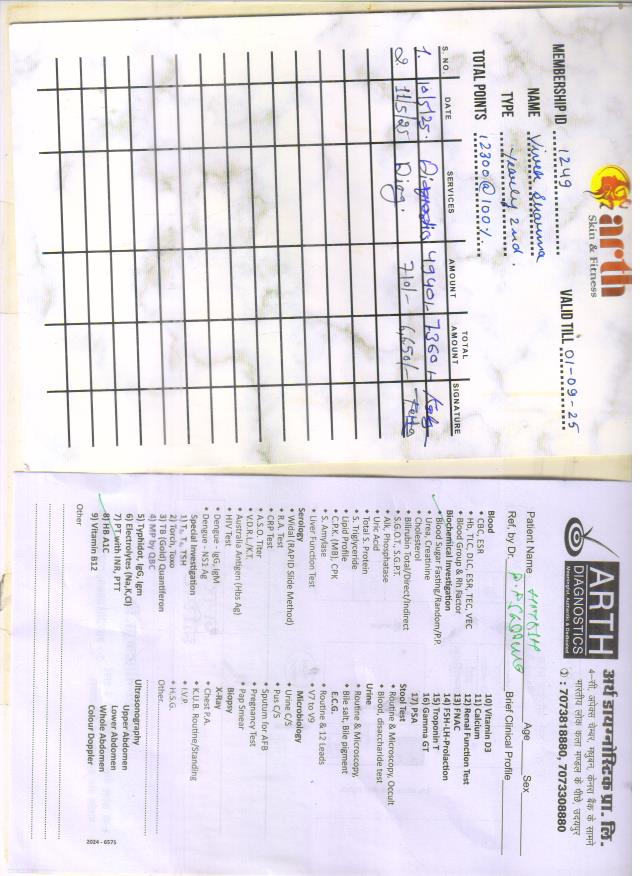 arth
Skin & Fitness
MEMBERSHIP ID 1249 VALID TILL 01-09-25
NAME Vivek Sharma
TYPE Yearly 2nd.
TOTAL POINTS 12300@100%
S. NO. DATE SERVICES AMOUNT TOTAL AMOUNT SIGNATURE
1. 10/5/25. Diagnostic 4940/- 7360/-
2. 11/5/25 Diag. 710/- 6,650/-
ARTH
DIAGNOSTICS
Meaningful, Authentic & Dedicated
अर्थ डायग्नोस्टिक प्रा. लि.
4-सी, अपेक्स चैम्बर, मधुबन, केनरा बैंक के सामने
भारतीय लोक कला मण्डल के पीछे, उदयपुर
: 7073818880, 7073308880
Patient Name Age Sex
Ref. by Dr. Brief Clinical Profile
Blood
• CBC, ESR
• Hb, TLC, DLC, ESR, TEC, VEC
• Blood Group & Rh Factor
Biochemical Investigation
• Blood Sugar Fasting/Random/P.P.
• Urea, Creatinine
• Cholesterol
• Bilirubin Total/Direct/Indirect
• S.G.O.T. S.G.P.T.
• Alk. Phosphatase
• Uric Acid
• Total S. Protein
• S. Triglyceride
• Lipid Profile
• C.P.K. (MB), CPK
• S. Amylase
• Liver Function Test
Serology
• Widal (RAPID Slide Method)
• R.A. Test
• CRP Test
• A.S.O. Titer
• V.D.R.L./K.T.
• Australia Antigen (Hbs Ag)
• HIV Test
• Dengue - IgG, IgM
• Dengue - NS1 Ag
Special Investigation
1) T₃, T₄, TSH
2) Torch, Toxo
3) TB (Gold) Quantiferon
4) MP by QBC
5) Typhidot, IgG, Igm
6) Electrolytes (Na,K,Cl)
7) PT with INR, PTT
8) HB A1C
9) Vitamin B12
Other
10) Vitamin D3
11) Calcium
12) Renal Function Test
13) FNAC
14) FSH-LH-Prolaction
15) Troponin T
16) Gamma GT
17) PSA
Stool Test
• Routine & Microscopy, Occult
• Blood, disaccharide test
Urine
• Routine & Microscopy,
• Bile salt, Bile pigment
E.C.G.
• Routine & 12 Leads
• V7 to V9
Microbiology
• Urine C/S
• Pus C/S
• Sputum for AFB
• Pregnancy Test
• Pap Smear
Biopsy
X-Ray
• Chest P.A.
• K.U.B. Routine/Standing
• I.V.P.
• H.S.G.
Other
Ultrasonography
Upper Abdomen
Lower Abdomen
Whole Abdomen
Colour Doppler
2024 - 6575